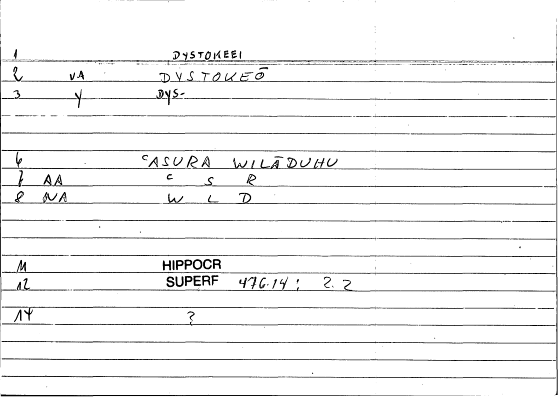 1 DYSTOKEEI
2 VA DYSTOKEŌ
3 Y DYS-
6 ʿASURA WILĀDUHU
7 AA ʿ S R
8 NA W L D
11 HIPPOCR
12 SUPERF 476.14 ; 2. 2
14 ?